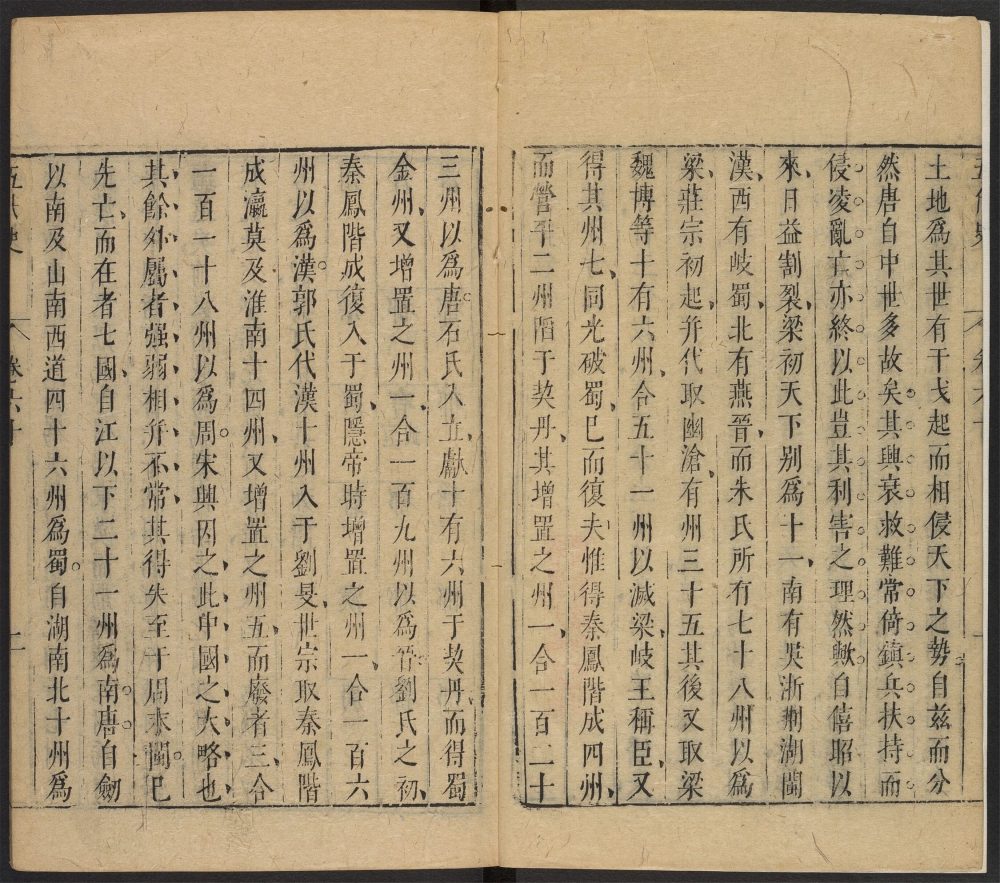 土地爲其世有干戈起而相侵天下之勢自兹而分
然唐自中世多故矣其興衰救難常倚鎮兵扶持而
侵凌亂亡亦終以此豈其利害之理然歟自僖昭以
來日益割裂梁初天下别爲十一南有吴浙荆湖閩
漢西有岐蜀北有燕晉而朱氏所有七十八州以爲
梁莊宗初起并代取幽滄有州三十五其後又取梁
魏博等十有六州合五十一州以滅梁岐王稱臣又
得其州七同光破蜀已而復失惟得秦鳳階成四州
而營平二州陷于契丹其增置之州一合一百二十
三州以爲唐石氏入立獻十有六州于契丹而得蜀
金州又增置之州一合一百九州以爲晉劉氏之初
秦鳳階成復入于蜀隱帝時增置之州一合一百六
州以爲漢郭氏代漢十州入于劉旻世宗取秦鳳階
成瀛莫及淮南十四州又增置之州五而廢者三合
一百一十八州以爲周宋興因之此中國之大略也
其餘外屬者强弱相并不常其得失至于周末閩已
先亡而在者七國自江以下二十一州爲南唐自劒
以南及山南西道四十六州爲蜀自湖南北十州爲
五代史 卷六十 二